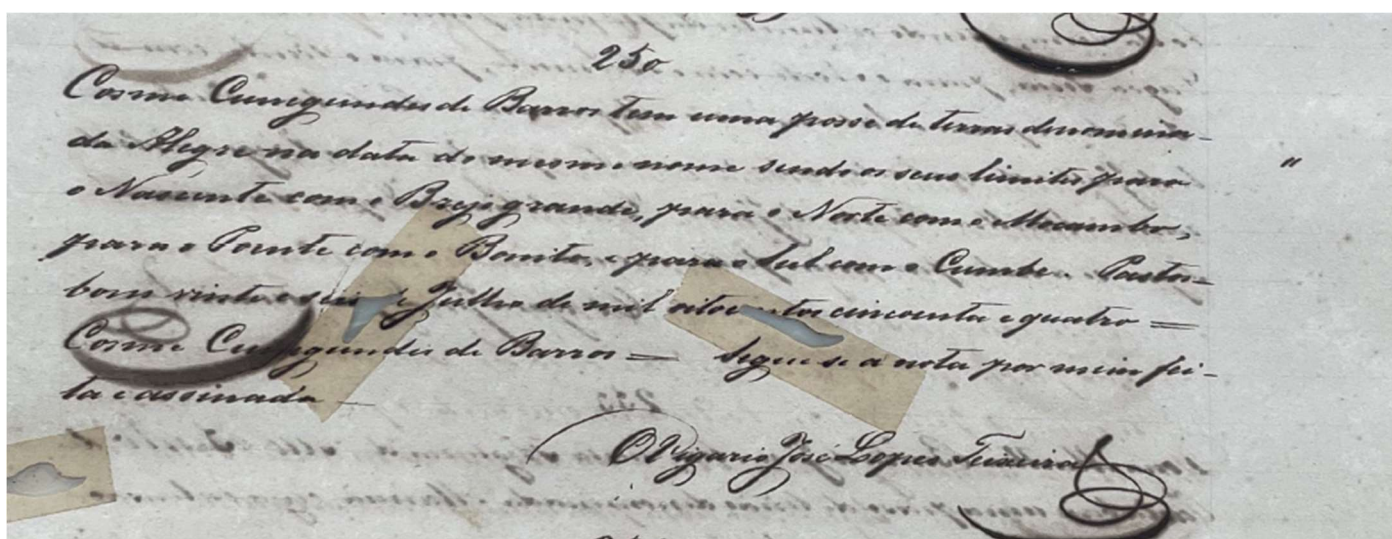 250
Cosme Cunegundes de Barros tem uma posse de terras denomina-
da Alegre na data do mesmo nome sendo os seus limites para
o Nascente com o Brejo grande, para o Norte com o Mocambo,
para o Poente com o Bonito, e para o Sul com o Cumbe. Pastos-
bons vinte e seis de Julho de mil oitocentos cincoenta e quatro =
Cosme Cunegundes de Barros = Segue se a nota por mim fei-
ta e assinada
O Vigario José Lopes Teixeira